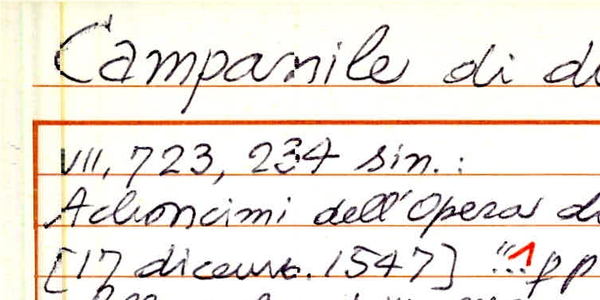 Campanile di d
VII, 723, 234 sin.:
Acconcimi dell'Opera d
[17 dicemb. 1547] "...1 pp